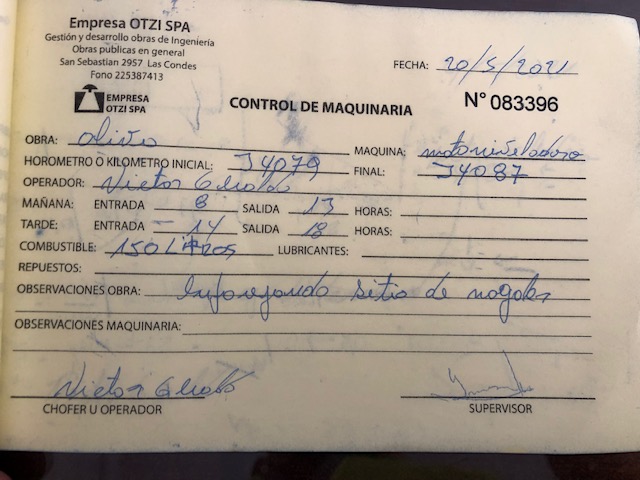 Empresa OTZI SPA
Gestión y desarrollo obras de Ingeniería
Obras públicas en general
San Sebastian 2957 Las Condes
Fono 225387413
FECHA: 20/5/2021
EMPRESA
OTZI SPA
CONTROL DE MAQUINARIA
N° 083396
OBRA: MAQUINA: motoniveladora
HOROMETRO O KILOMETRO INICIAL: 34079 FINAL: 34087
OPERADOR:
MAÑANA: ENTRADA 8 SALIDA 13 HORAS:
TARDE: ENTRADA 14 SALIDA 18 HORAS:
COMBUSTIBLE: 150 Litros LUBRICANTES:
REPUESTOS:
OBSERVACIONES OBRA: sitio de nogales
OBSERVACIONES MAQUINARIA:
CHOFER U OPERADOR
SUPERVISOR